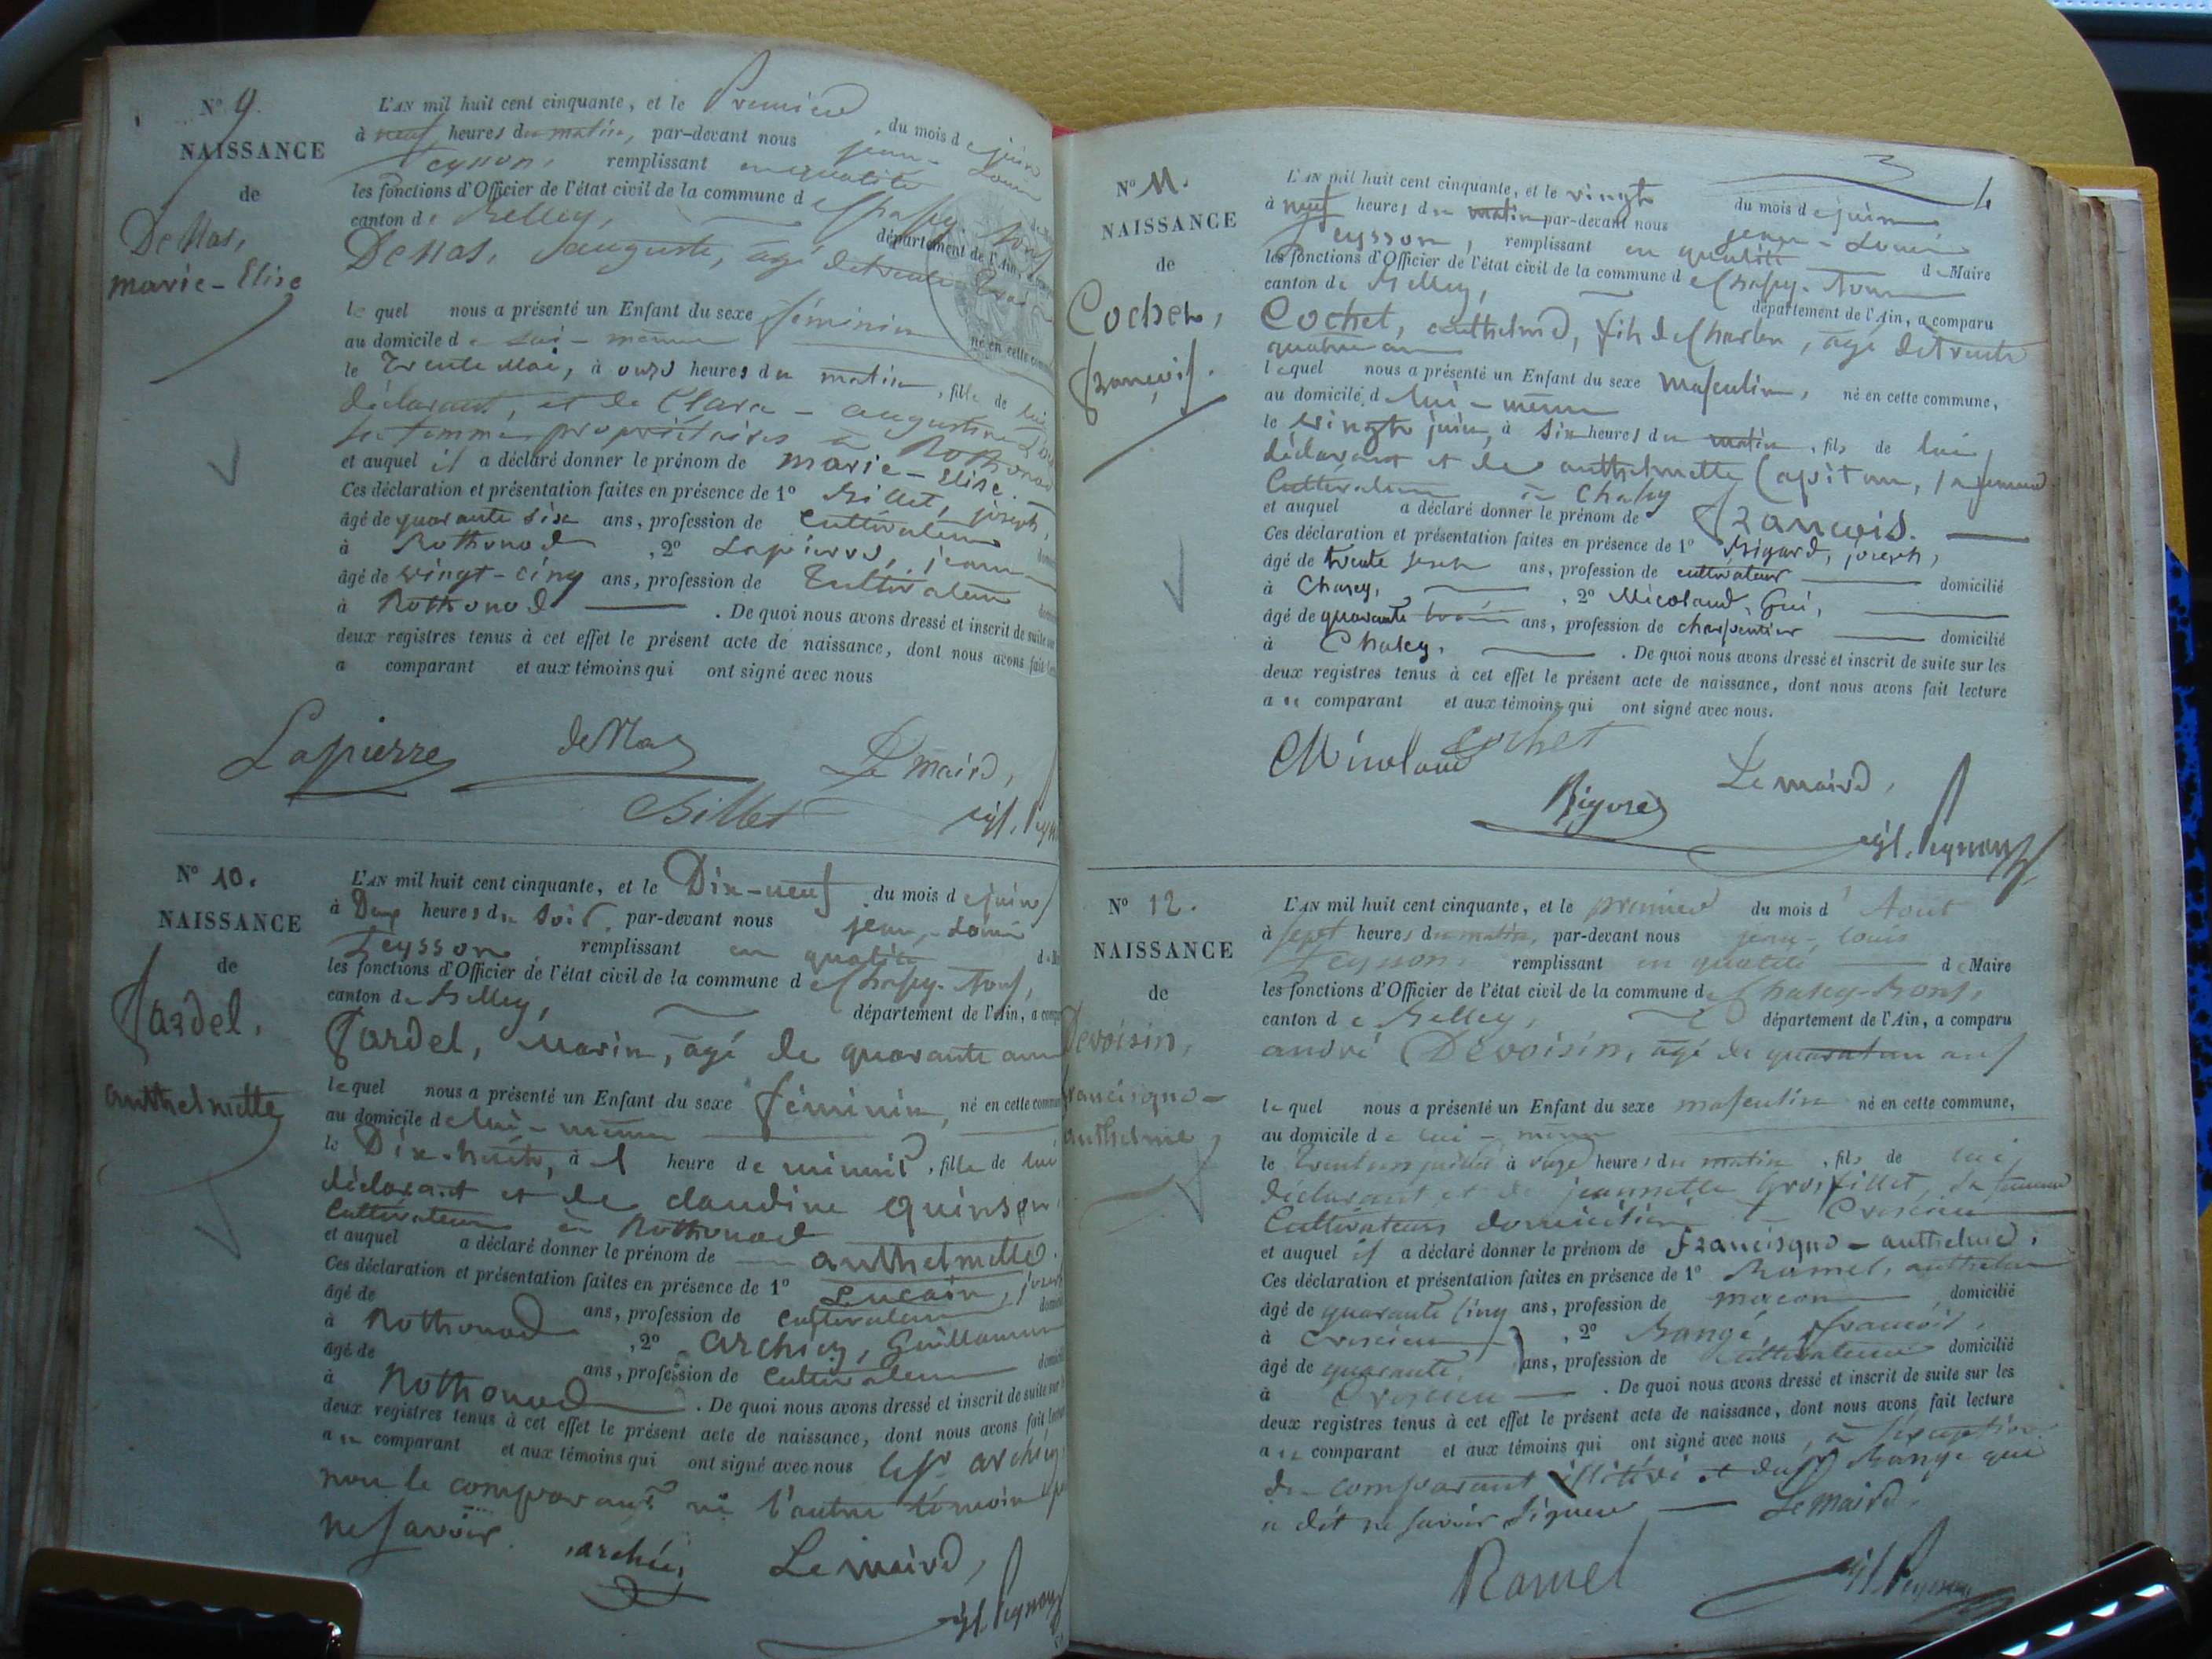 Nº 9.
NAISSANCE
de
DeMas,
marie-Elise
L'AN mil huit cent cinquante, et le Premier du mois de juin
à neuf heures du matin, par-devant nous jean-Louis
Peysson, remplissant en qualité
les fonctions d'Officier de l'état civil de la commune de Chasey-Bons
canton de Belley, département de l'Ain, a
DeMas, auguste, âgé de trente
lequel nous a présenté un Enfant du sexe féminin né en cette
au domicile de lui-même
le trente Mai, à onze heures du matin, fille de lui
déclarant, et de Clara-augustine
sa femme, propriétaires à Rothonod
et auquel il a déclaré donner le prénom de marie-Elise.
Ces déclaration et présentation faites en présence de 1º Billet, joseph,
âgé de quarante six ans, profession de cultivateur
à Rothonod, 2º Lapierre, jean
âgé de vingt-cinq ans, profession de Cultivateur
à Rothonod. De quoi nous avons dressé et inscrit de suite sur
deux registres tenus à cet effet le présent acte de naissance, dont nous avons fait
a comparant et aux témoins qui ont signé avec nous
Lapierre deMas Le maire,
Billet
Nº 10.
NAISSANCE
de
Jardel,
anthelmette
L'AN mil huit cent cinquante, et le Dix-neuf du mois de juin
à Deux heures du soir, par-devant nous jean-Louis
Peysson remplissant en qualité
les fonctions d'Officier de l'état civil de la commune de Chasey-Bons,
canton de Belley, département de l'Ain, a
Jardel, Marin, âgé de quarante ans
lequel nous a présenté un Enfant du sexe féminin, né en cette
au domicile de lui-même
le Dix-huit, à 1 heure de minuit, fille de lui
déclarant et de claudine Quinson
Cultivateurs à Rothonod
et auquel a déclaré donner le prénom de anthelmette.
Ces déclaration et présentation faites en présence de 1º Lucain,
âgé de ans, profession de cultivateur
à Rothonod, 2º archiey, Guillaume
âgé de ans, profession de Cultivateur
à Rothonod. De quoi nous avons dressé et inscrit de suite sur
deux registres tenus à cet effet le présent acte de naissance, dont nous avons fait
a comparant et aux témoins qui ont signé avec nous
non le comparant ni l'autre témoin
ne savoir. Le maire,
Nº 11.
NAISSANCE
de
Cochet,
françois.
L'AN mil huit cent cinquante, et le vingt du mois de juin
à neuf heures du matin par-devant nous jean-Louis
Peysson, remplissant en qualité de Maire
les fonctions d'Officier de l'état civil de la commune de Chasey-Bons
canton de Belley, département de l'Ain, a comparu
Cochet, anthelme, fils de Charles, âgé de trente
quatre ans
lequel nous a présenté un Enfant du sexe masculin, né en cette commune,
au domicile de lui-même
le vingt juin, à six heures du matin, fils de lui
déclarant et de anthelmette Capitan, sa femme
Cultivateurs à Chasey
et auquel a déclaré donner le prénom de françois.
Ces déclaration et présentation faites en présence de 1º Bigard, joseph,
âgé de trente ans, profession de cultivateur domicilié
à Chasey, 2º Micoland, Gui,
âgé de quarante trois ans, profession de charpentier domicilié
à Chasey. De quoi nous avons dressé et inscrit de suite sur les
deux registres tenus à cet effet le présent acte de naissance, dont nous avons fait lecture
au comparant et aux témoins qui ont signé avec nous.
Micoland Cochet
Le maire,
Nº 12.
NAISSANCE
de
Devoisin,
francisque-
anthelme
L'AN mil huit cent cinquante, et le premier du mois d'Août
à sept heures du matin, par-devant nous jean-louis
Peysson, remplissant en qualité de Maire
les fonctions d'Officier de l'état civil de la commune de Chasey-Bons,
canton de Belley, département de l'Ain, a comparu
andré Devoisin, âgé de ans
lequel nous a présenté un Enfant du sexe masculin né en cette commune,
au domicile de lui-même
le juillet à onze heures du matin, fils de lui
déclarant et de jeannette Grosfillet, sa femme
Cultivateurs domiciliés à
et auquel il a déclaré donner le prénom de francisque-anthelme.
Ces déclaration et présentation faites en présence de 1º Ramel, anthelme
âgé de quarante cinq ans, profession de maçon domicilié
à, 2º françois,
âgé de quarante, ans, profession de cultivateur domicilié
à. De quoi nous avons dressé et inscrit de suite sur les
deux registres tenus à cet effet le présent acte de naissance, dont nous avons fait lecture
au comparant et aux témoins qui ont signé avec nous, à l'exception
du comparant illitéré et du que
a dit ne savoir signer Le Maire.
Ramel